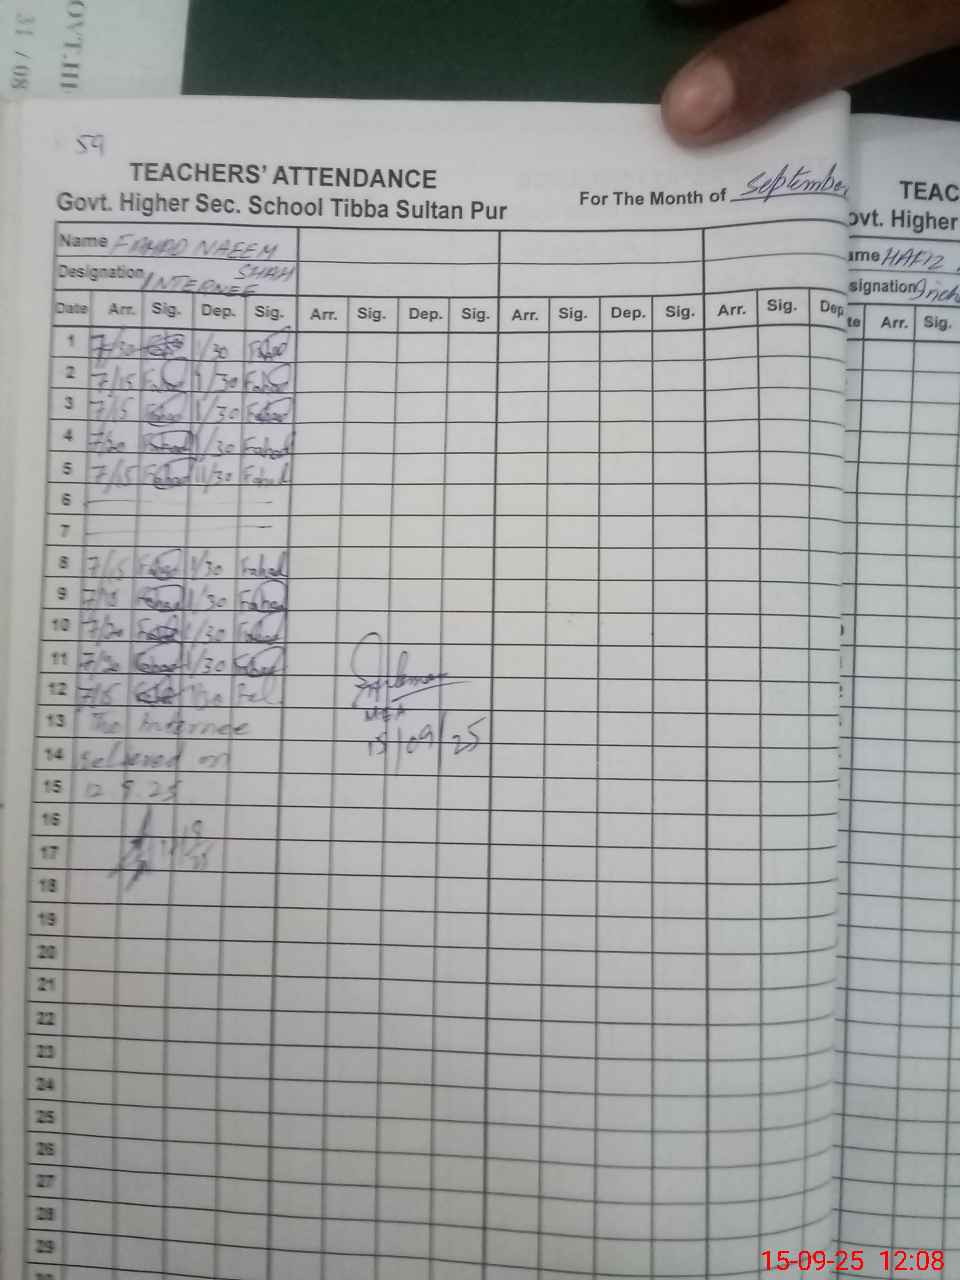 OVT.HI
31 / 08
59
TEACHERS' ATTENDANCE
Govt. Higher Sec. School Tibba Sultan Pur
For The Month of September
Name FAHAD NAEEM SHAH
Designation INTERNEE
Date Arr. Sig. Dep. Sig. Arr. Sig. Dep. Sig. Arr. Sig. Dep. Sig. Arr. Sig. Dep
1 7/30 1/30 Fahad
2 7/15 Fahad 1/30 Fahad
3 7/15 Fahad 1/30 Fahad
4 7/20 Fahad 1/30 Fahad
5 7/15 Fahad 11/30 Fahad
6
7
8 7/15 Fahad 1/30 Fahad
9 7/15 Fahad 1/30 Fahad
10 7/20 Fahad 1/30 Fahad
11 7/20 Fahad 1/30 Fahad
12 7/15 1/30
13 The Internee
14 relieved on
15 12.9.25
16
17
18
19
20
21
22
23
24
25
26
27
28
29
MEA
15/09/25
TEAC
ovt. Higher
ame HAFIZ
signation
te Arr. Sig.
15-09-25 12:08